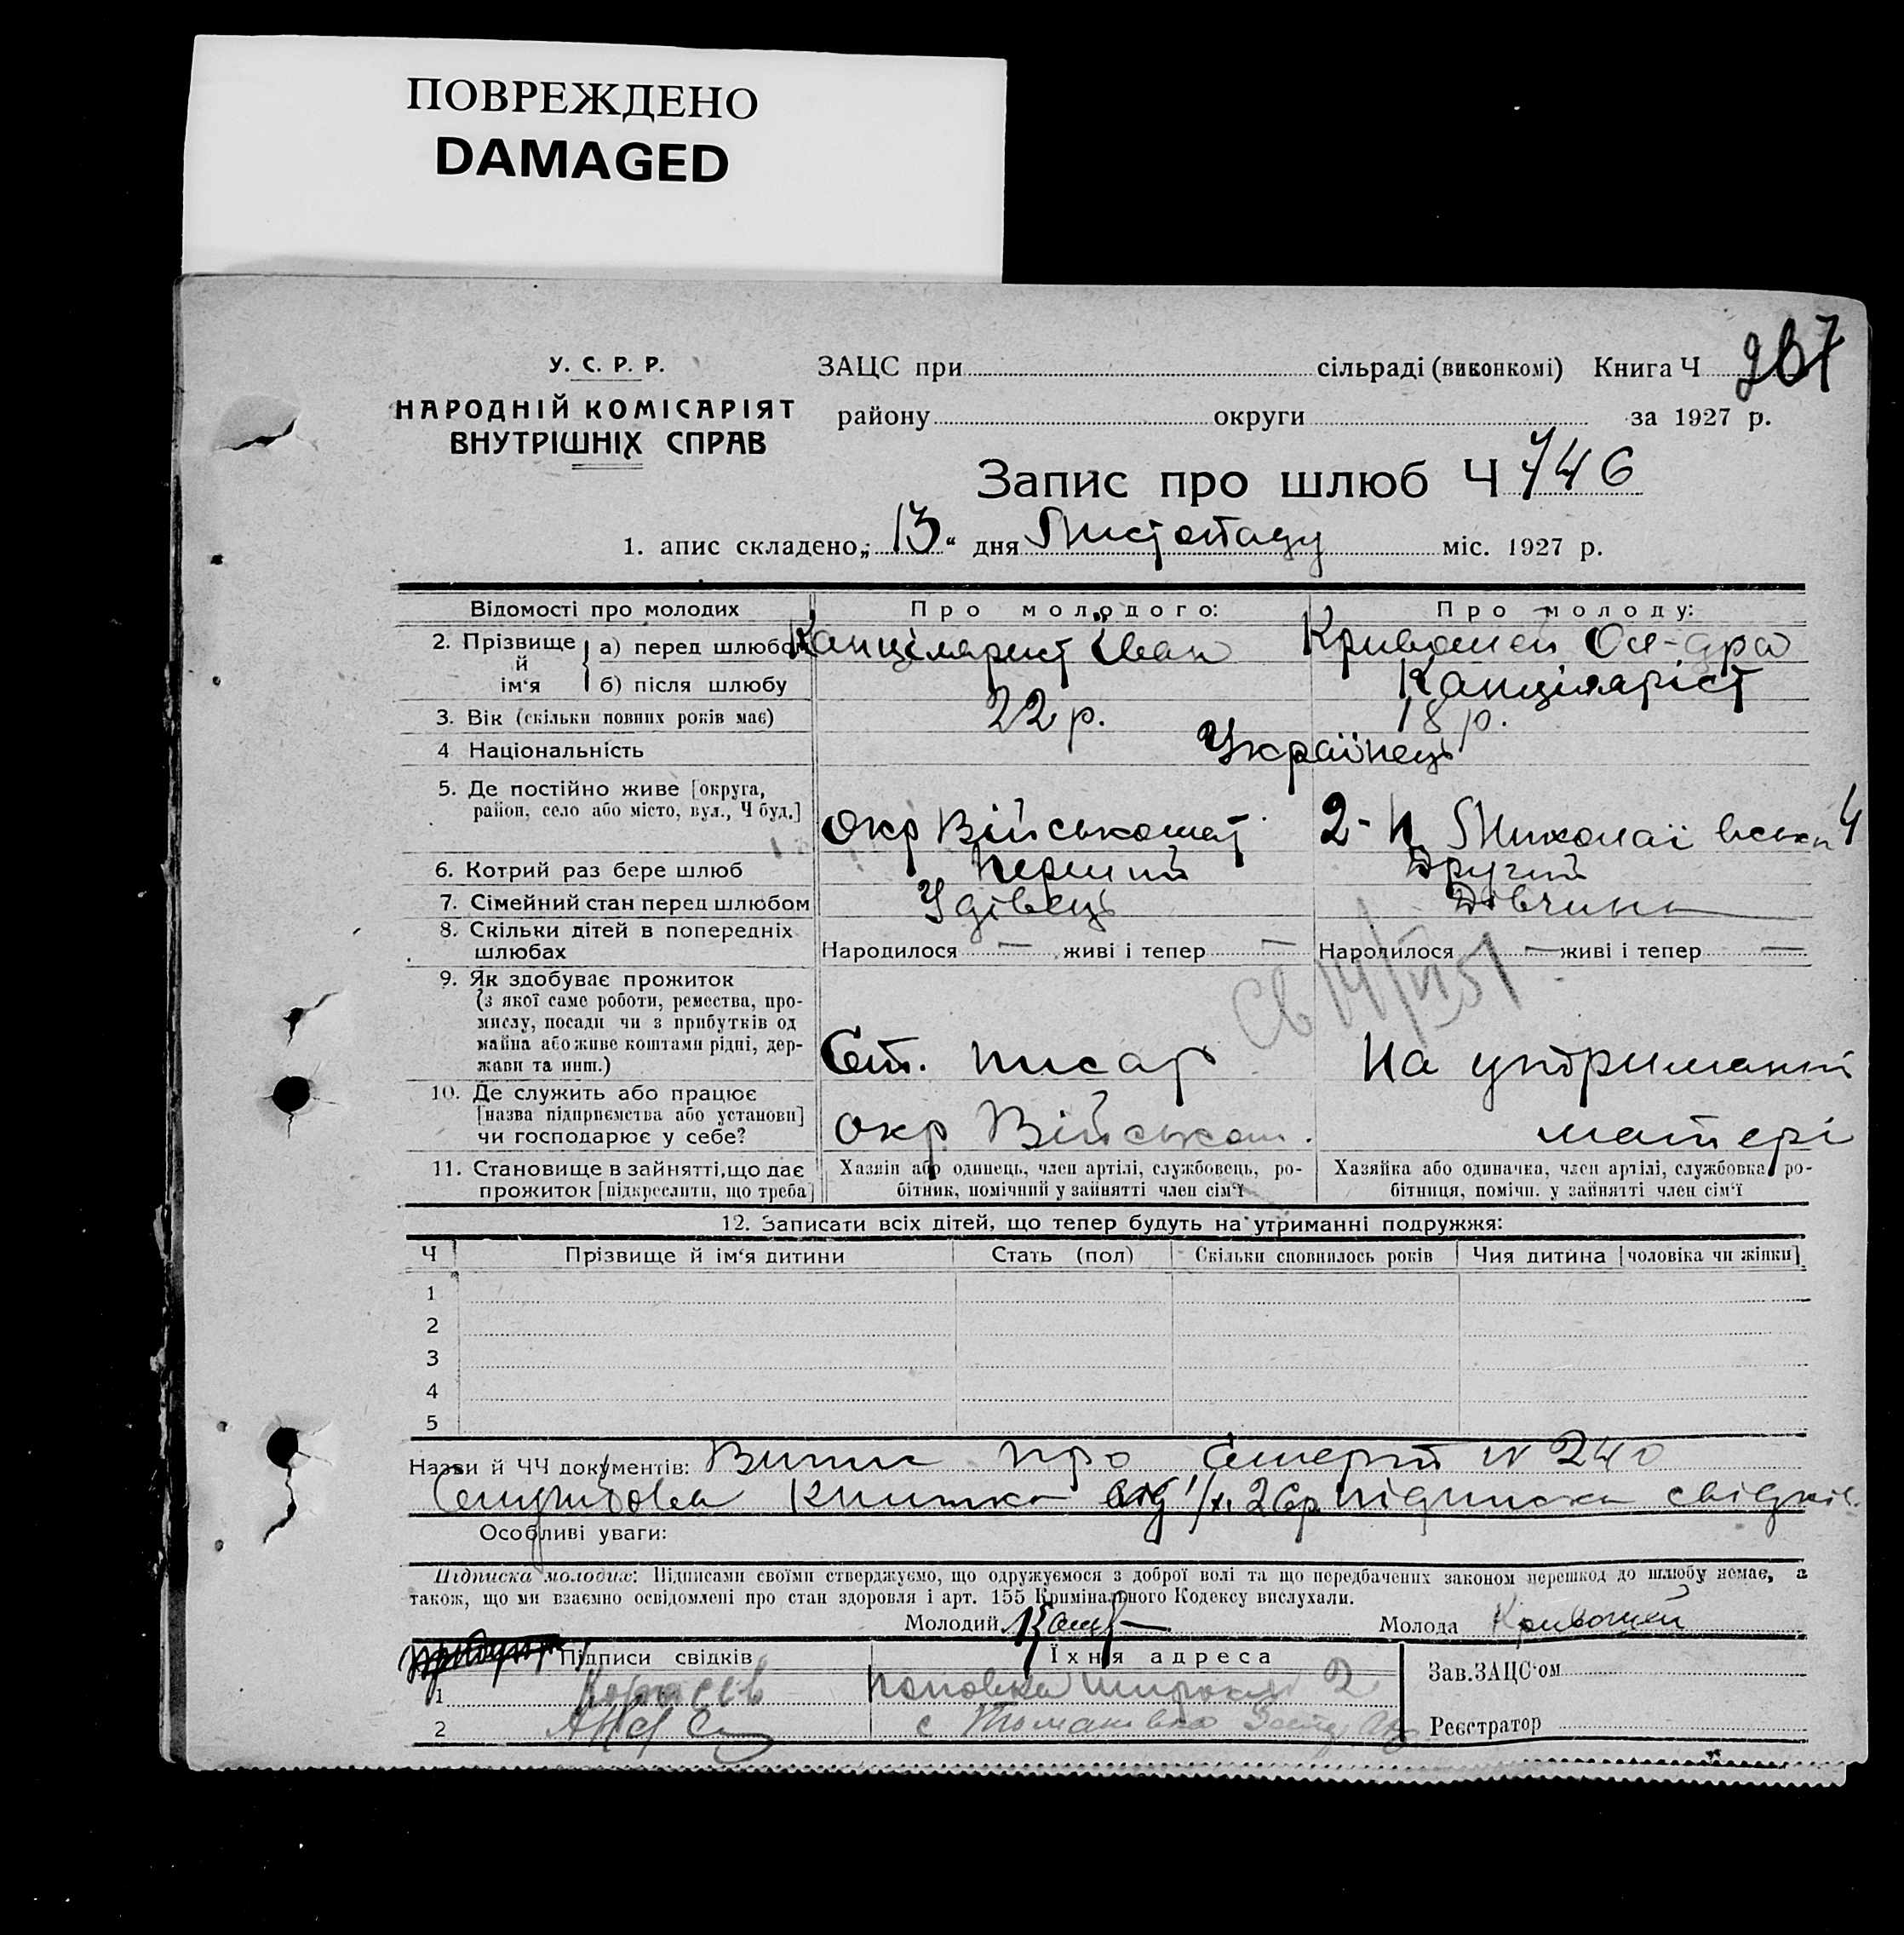 ПОВРЕЖДЕНО
DAMAGED
У. С. Р. Р.
НАРОДНІЙ КОМІСАРІЯТ
ВНУТРІШНІХ СПРАВ
ЗАЦС при сільраді (виконкомі) Книга Ч
району округи за 1927 р.
Запис про шлюб Ч 746
1. апис складено „ 13 “ дня Листопаду міс. 1927 р.
Відомості про молодих Про молодого: Про молоду:
2. Прізвище й ім‘я а) перед шлюбом Канцілярист Іван Кривошей
б) після шлюбу Канціляріст
3. Вік (скільки повних років має) 22 р. 18 р.
4 Національність Українець
5. Де постійно живе [округа,
район, село або місто, вул., Ч буд.] Окр Військомат 2-
6. Котрий раз бере шлюб Перший Другий
7. Сімейний стан перед шлюбом Удівець Дівчина
8. Скільки дітей в попередніх
шлюбах Народилося — живі і тепер — Народилося — живі і тепер —
9. Як здобуває прожиток
(з якої саме роботи, ремества, про-
мислу, посади чи з прибутків од
майна або живе коштами рідні, дер-
жави та инш.) Ст. писар На утриманні
10. Де служить або працює
[назва підприємства або установи]
чи господарює у себе? Окр. Військом. матері
11. Становище в зайнятті, що дає
прожиток [підкреслити, що треба]
Хазяїн або одинець, член артілі, службовець, ро-
бітник, помічний у зайнятті член сім‘ї
Хазяйка або одиначка, член артілі, службовка, ро-
бітниця, помічн. у зайнятті член сім‘ї
12. Записати всіх дітей, що тепер будуть на утриманні подружжя:
Ч Прізвище й ім‘я дитини Стать (пол) Скільки сповнилось років Чия дитина [чоловіка чи жінки]
1
2
3
4
5
Назви й ЧЧ документів: Випис про смерть N 240
книжка від підписка свідків.
Особливі уваги:
Підписка молодих: Підписами своїми стверджуємо, що одружуємося з доброї волі та що передбачених законом перешкод до шлюбу немає, а
також, що ми взаємно освідомлені про стан здоровля і арт. 155 Кримінального Кодексу вислухали.
Молодий Молода Кривошей
Підписи свідків Їхня адреса Зав. ЗАЦС‘ом
1
2 Реєстратор